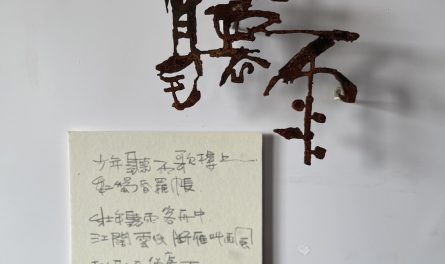 聽雨
少年聽雨歌樓上
紅燭昏羅帳
壯年聽雨客舟中
江闊雲低 斷雁叫西風